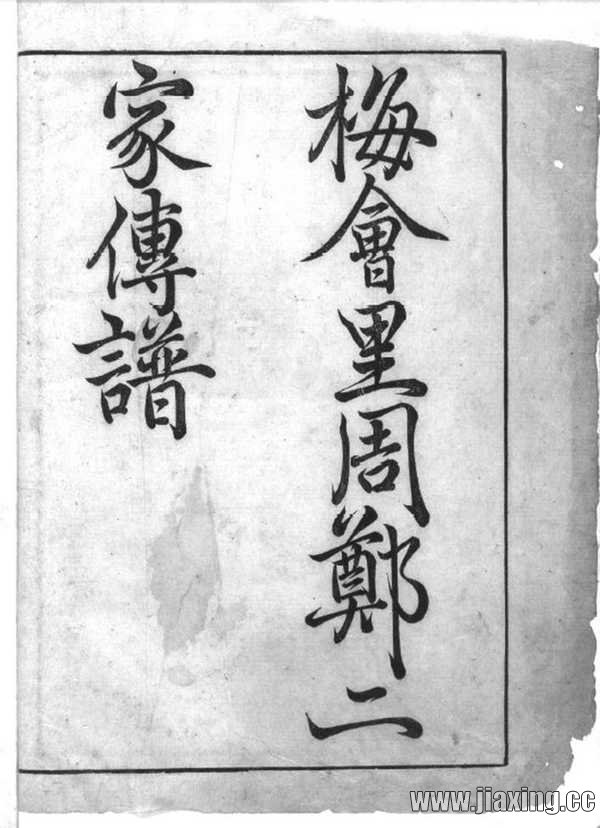 梅會里周鄭二
家傳譜
www.jiaxing.cc